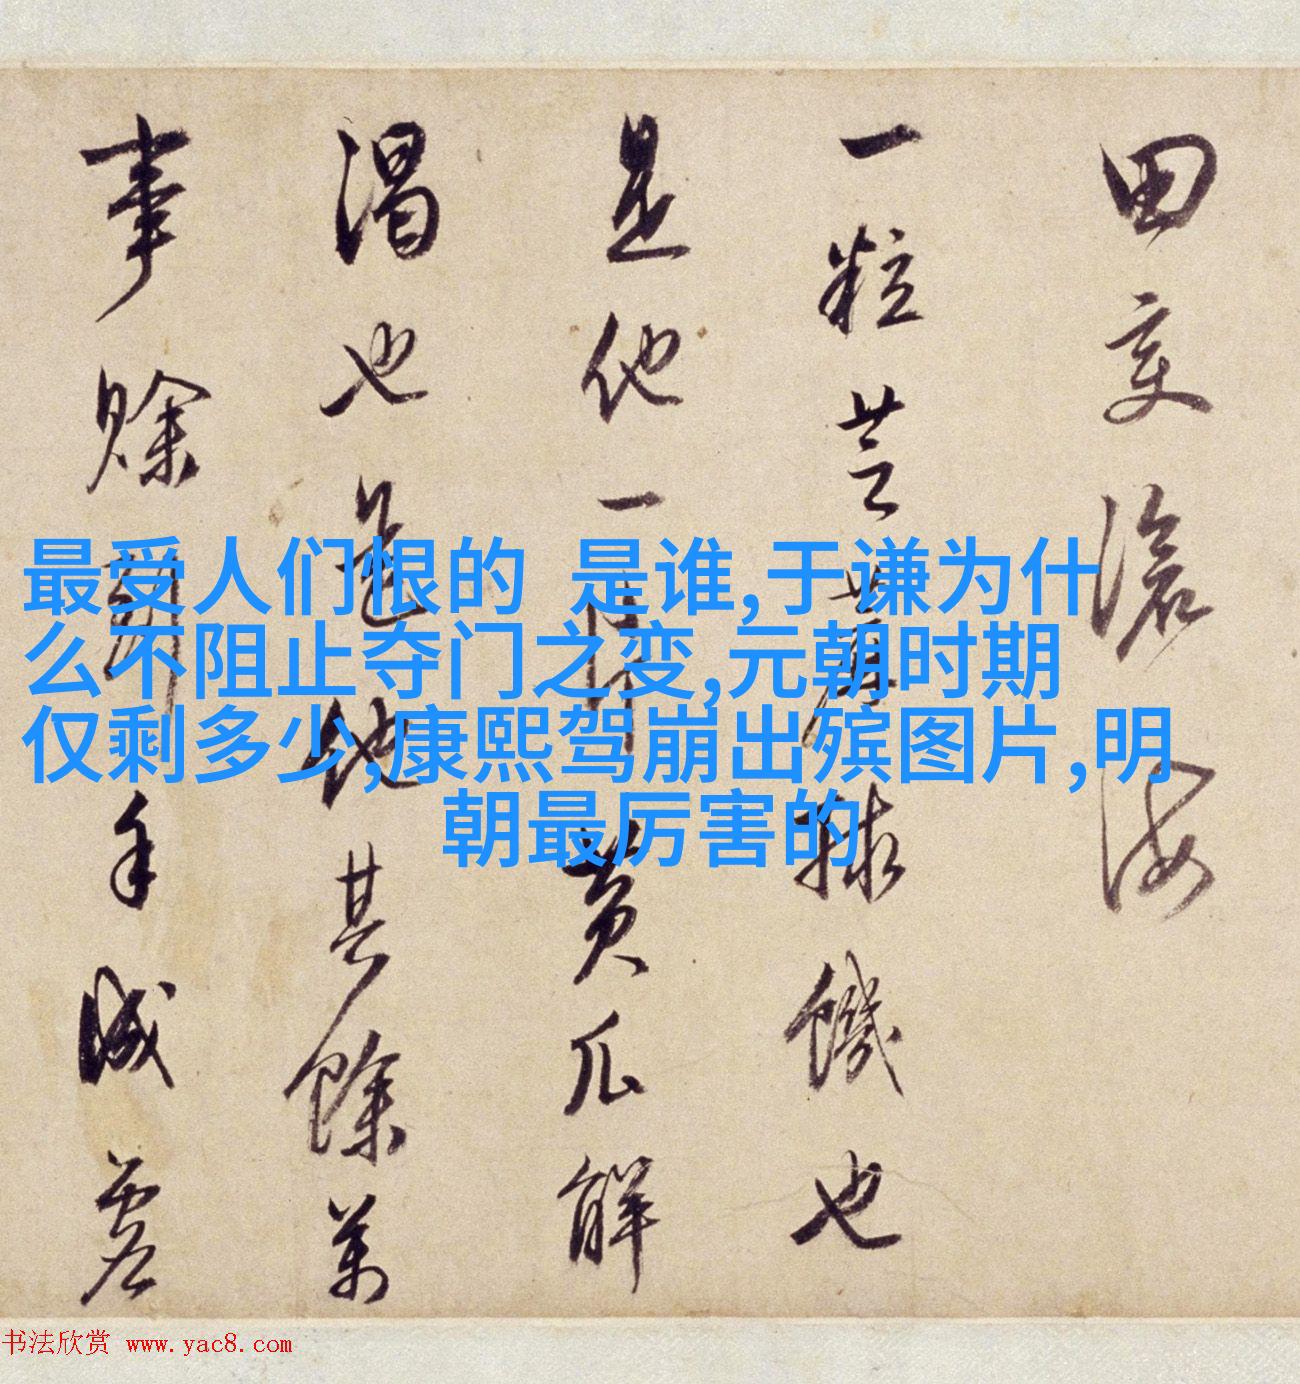 田变沧海
一粒芝麻救饥也
是他一片黄瓜解
渴也是他其馀万
事赊
手减
最受人们恨的 是谁,于谦为什
么不阻止夺门之变,元朝时期
仅剩多少,康熙驾崩出殡图片,明
朝最厉害的
书法欣赏 www.yac8.com